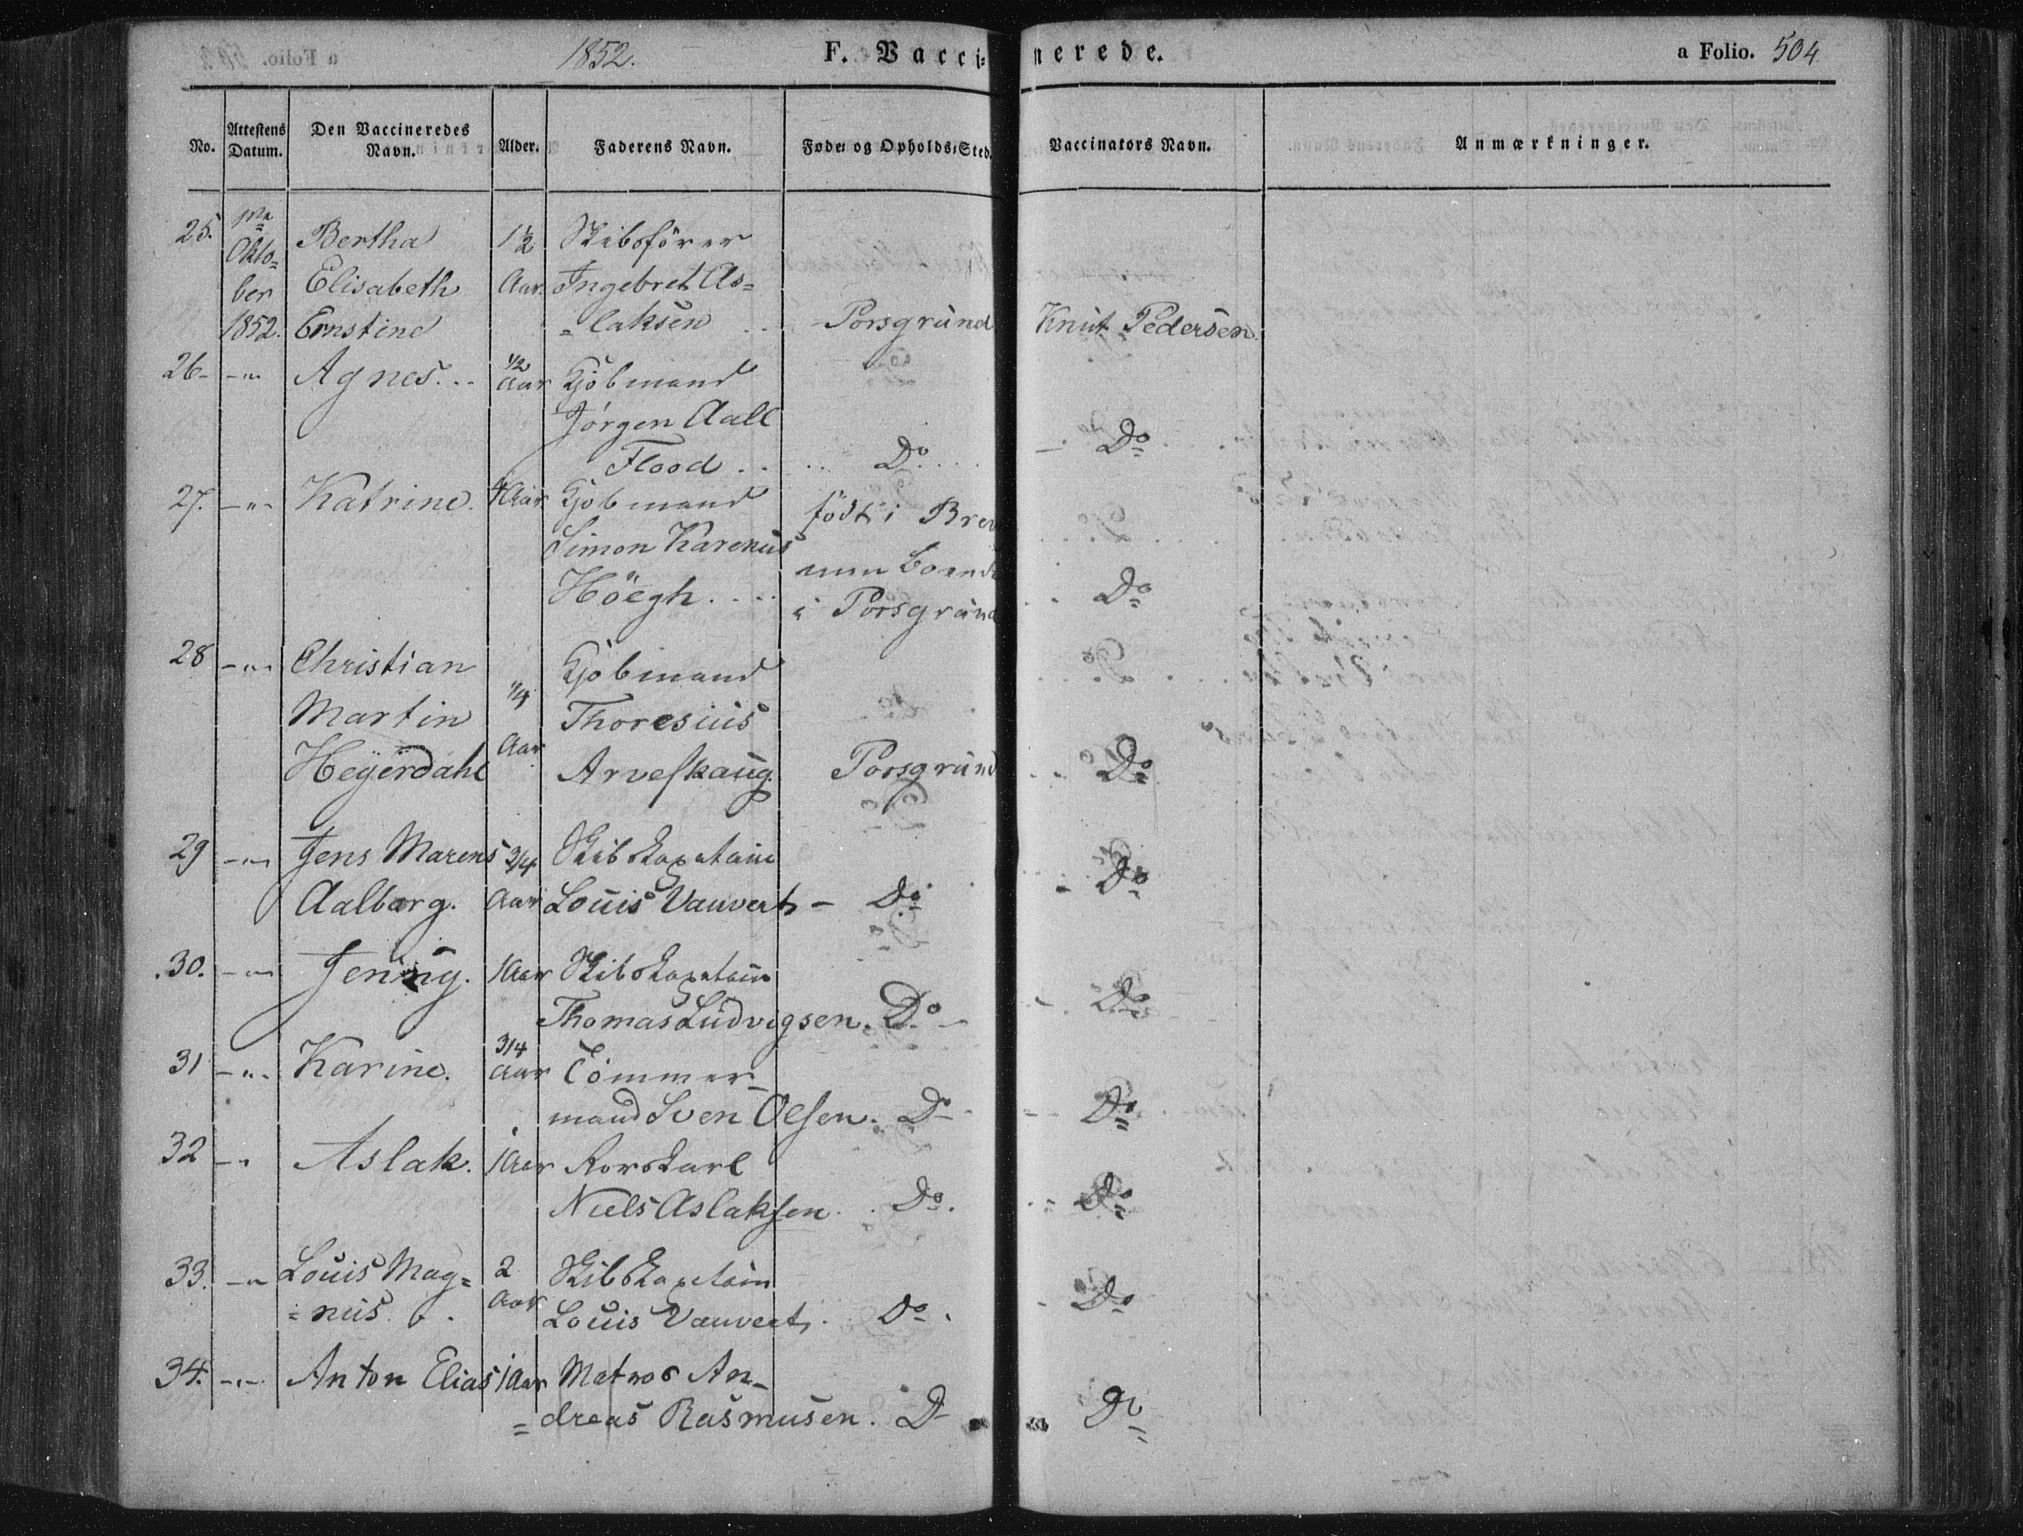 1852.
F. Vaccinerede.
a Folio. 504
No.
Attestens Datum.
Den Vaccineredes Navn.
Alder.
Faderens Navn.
Føde- og Opholds-Sted.
Vaccinators Navn.
Anmærkninger.
25. 1ma Bertha 1½ Skibsfører
Okto= Elisabeth Aar. Ingebret As=
ber
1852. Ernstine =laksen .. - Porsgrund Knut Pedersen.
26- -"- Agnes... 1/2 Aar Kjöbmand
Jörgen Aall
Flood .. .. Do .... - Do
27. -"- Katrine. Aar Kjöbmand födt i Brev
Simon Karenius nu boende
Höegh.... i Porsgrund .. Do
28 -"- Christian Kjöbmand
Martin 1/4 Thoresius
Heyerdahl Aar Arveskaug. Porsgrund .. Do
29 -"- Jens Marens 3/4 Skibskapetain - Do
Aalborg. Aar Louis Vauvert - Do
30. -"- Jenny. 1 Aar Skibskapetain
Thomas Ludvigsen. Do - - Do
31 -"- Karine. 3/4 Aar Tömmer-
mand Sven Olsen. Do - -- Do
32 -"- Aslak. 1 Aar Rorskarl
Niels Aslaksen. . Do. -- Do
33. -"- Louis Mag= 2 Aar Skibskapetain - Do
=nus. Louis Vauvert. Do .
34. -"- Anton Elias 1 Aar Matros An-
=dreas Rasmusen. Do Do